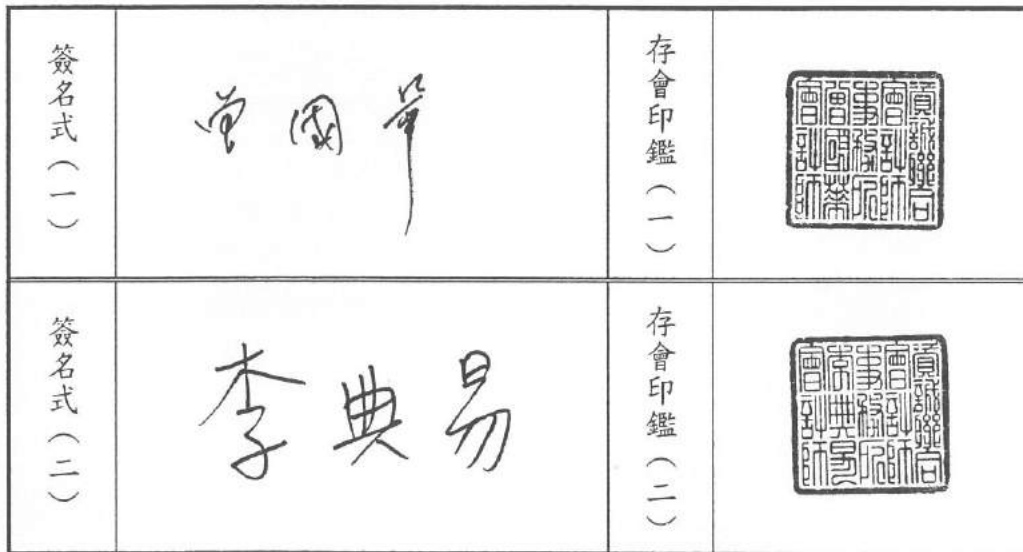 簽名式(一)
曾國華
存會印鑑(一)
資誠聯合
會計師
事務所
曾國華
會計師
簽名式(二)
李典易
存會印鑑(二)
資誠聯合
會計師
事務所
李典易
會計師